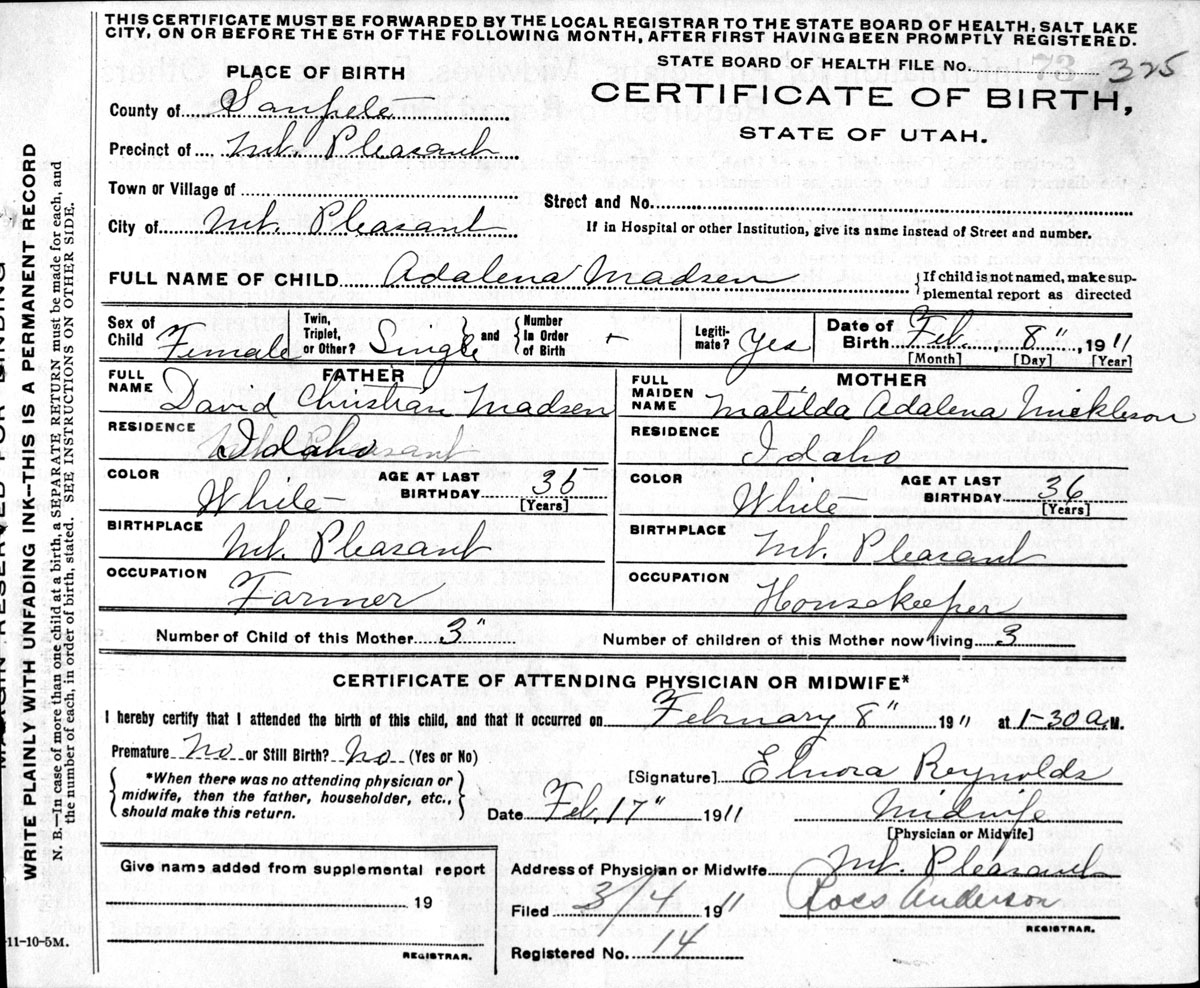 THIS CERTIFICATE MUST BE FORWARDED BY THE LOCAL REGISTRAR TO THE STATE BOARD OF HEALTH, SALT LAKE
CITY, ON OR BEFORE THE 5TH OF THE FOLLOWING MONTH, AFTER FIRST HAVING BEEN PROMPTLY REGISTERED.
STATE BOARD OF HEALTH FILE NO. 73 325
PLACE OF BIRTH
CERTIFICATE OF BIRTH,
STATE OF UTAH.
County of Sanpete
Precinct of Mt. Pleasant
Town or Village of
Street and No.
City of Mt. Pleasant
If in Hospital or other Institution, give its name instead of Street and number.
FULL NAME OF CHILD Adalena Madsen {If child is not named, make sup-
plemental report as directed
Sex of Child Female Twin, Triplet, or Other? Single and Number In Order of Birth + Legiti-mate? Yes Date of Birth Feb. 8", 1911
[Month] [Day] [Year]
FATHER
FULL NAME David Christian Madsen
RESIDENCE Idaho
COLOR White AGE AT LAST BIRTHDAY 35 [Years]
BIRTHPLACE Mt. Pleasant
OCCUPATION Farmer
MOTHER
FULL MAIDEN NAME Matilda Adalena Mickleson
RESIDENCE Idaho
COLOR White AGE AT LAST BIRTHDAY 36 [Years]
BIRTHPLACE Mt. Pleasant
OCCUPATION Housekeeper
Number of Child of this Mother 3" Number of children of this Mother now living 3
CERTIFICATE OF ATTENDING PHYSICIAN OR MIDWIFE*
I hereby certify that I attended the birth of this child, and that it occurred on February 8" 1911 at 1-30 a.M.
Premature No or Still Birth? No (Yes or No)
*When there was no attending physician or
midwife, then the father, householder, etc.,
should make this return.
[Signature] Elnora Reynolds
Date Feb. 17" 1911 Midwife
[Physician or Midwife]
Give name added from supplemental report
19
REGISTRAR.
Address of Physician or Midwife Mt. Pleasant
Filed 3/4 1911 Anderson
REGISTRAR.
Registered No. 14
11-10-5M.
MARGIN RESERVED FOR BINDING
WRITE PLAINLY WITH UNFADING INK--THIS IS A PERMANENT RECORD
N. B.—In case of more than one child at a birth, a SEPARATE RETURN must be made for each, and
the number of each, in order of birth, stated. SEE INSTRUCTIONS ON OTHER SIDE.